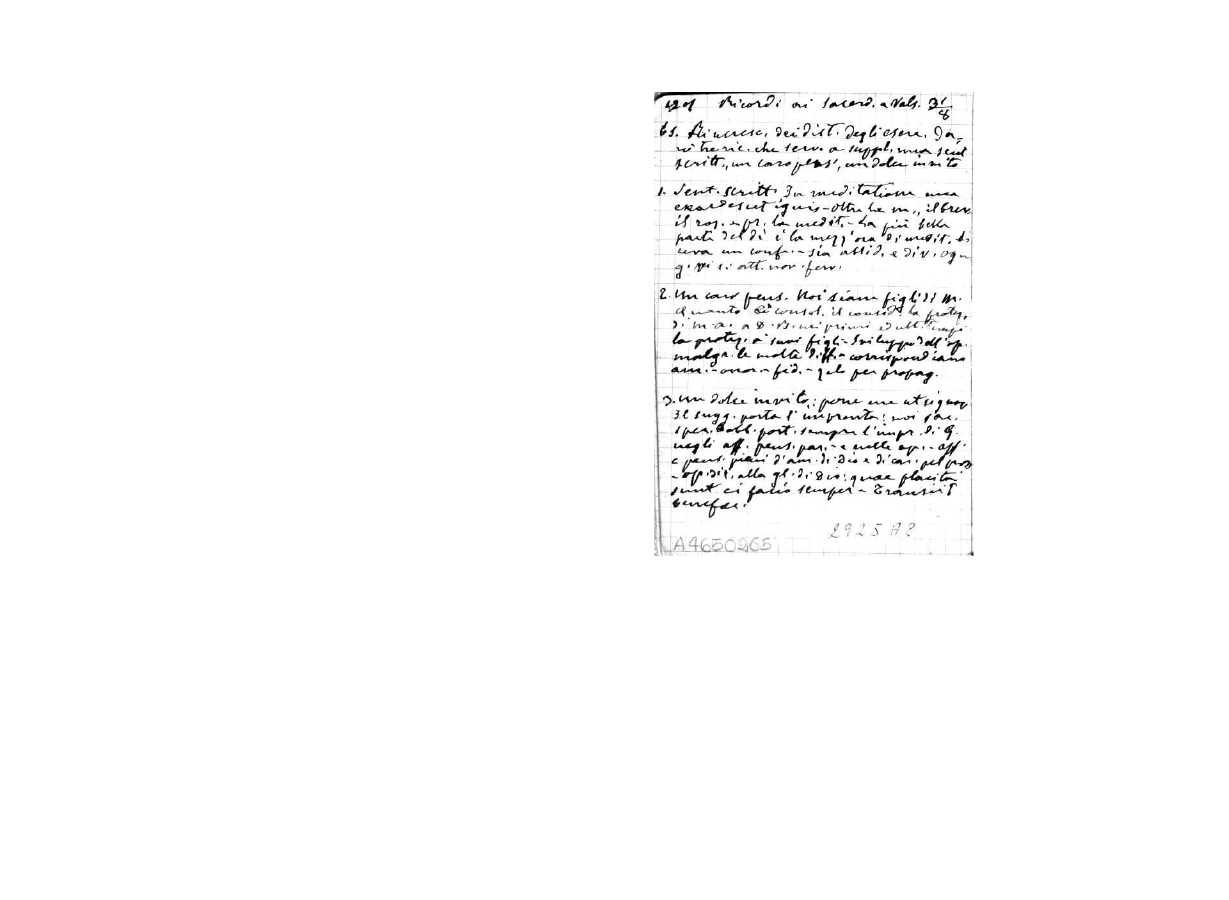 1901 Ricordi ai Sacerd. a Vals. 31/8
63. Rincresc. dei dist. degli eserc. Da-
rò tre ric. che serv. a suppl. una sent
scritt., un caro pens', un dolce invito
1. Sent. scritt. In meditatione mea
exardescet ignis - oltre la m., il brev
il ros. e pr. la medit. - La più bella
parte del dì è la mezz'ora di medit. di
ceva un conf. - sia assid. e div. ogn
g. vi si ott. nov. ferv.
2. Un caro pens. Noi siam figli di M.
Quanto è consol. il consid. la protez.
di M. A. a D. B. nei primi ed ult. tempi
la protez. ai suoi figli - Sviluppo dell'op.
malgr. le molte diff. - corrispondiamo
am. - onor - fid. - zelo per propag.
3. Un dolce invito: pone me ut signac
Il sugg. porta l'impronta: noi sac.
spec. dobb. port. sempre l'impr. di G.
negli aff. pens. par. - e nelle op. - aff.
e pens. pieni d'am. di Dio e di car. pel pros
- op. dir. alla gl. di Dio: quae placita
sunt ei facio semper - Transiit
benefac.
2925 A2
A4650265